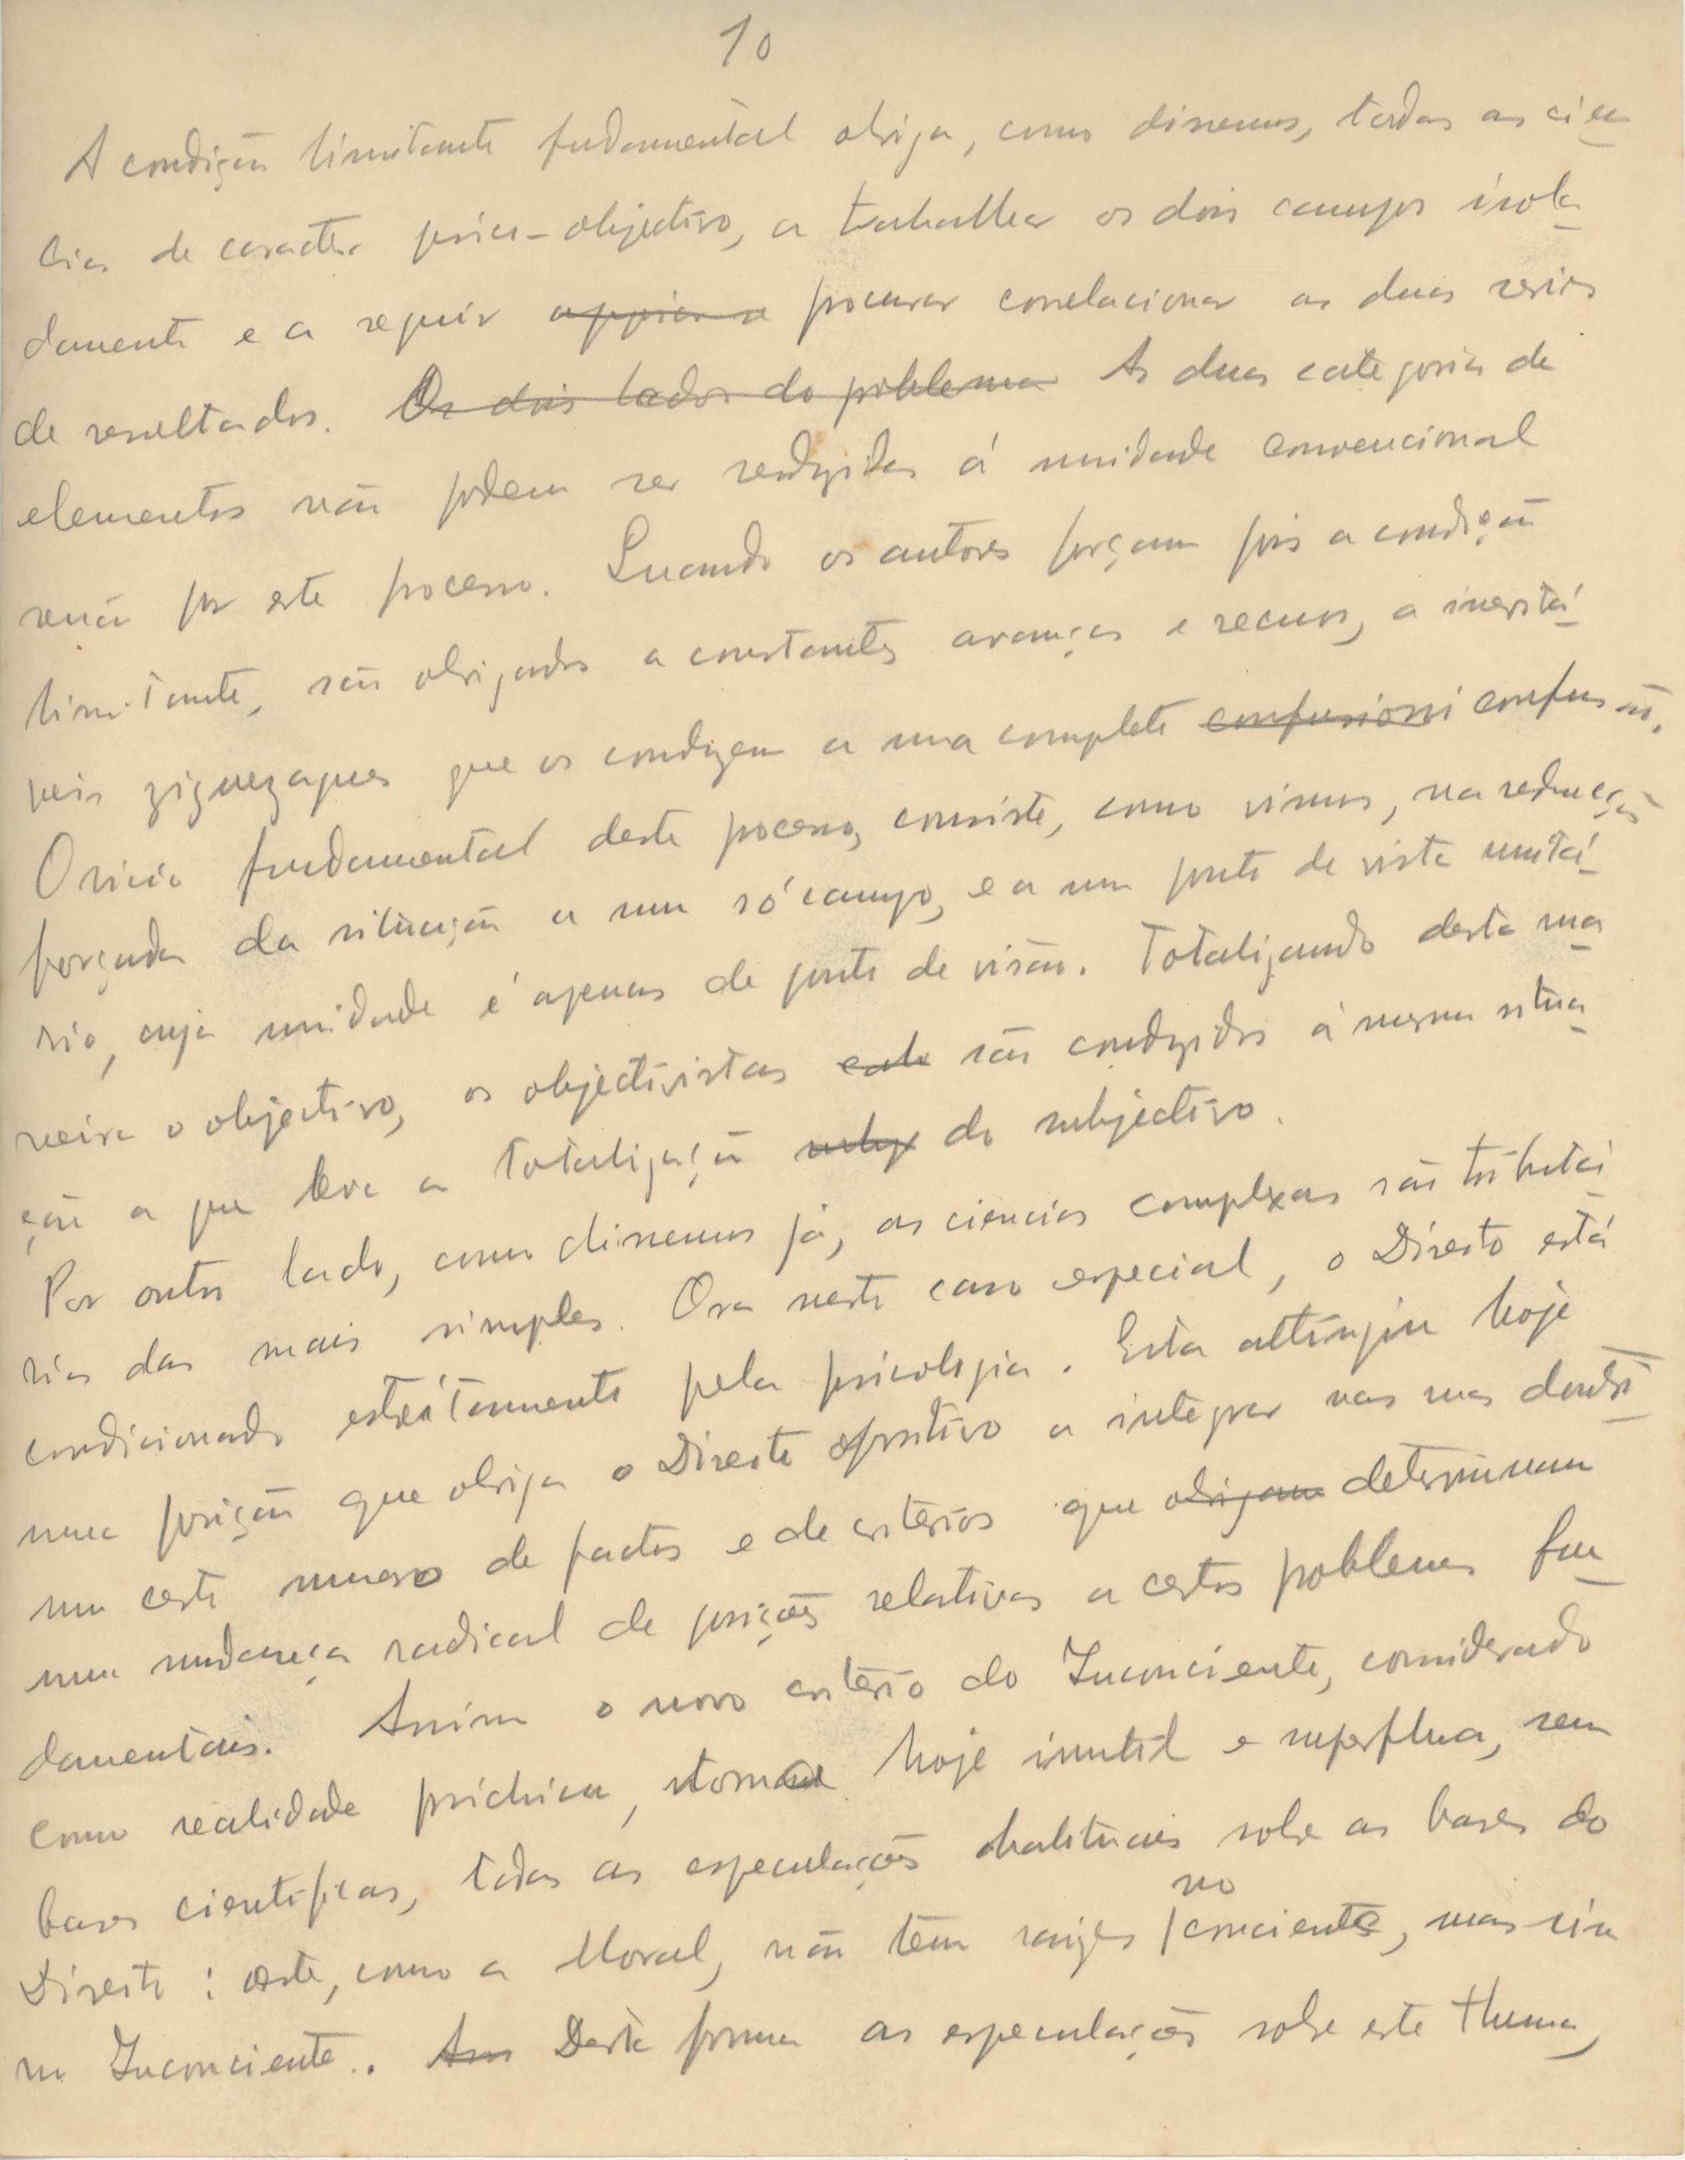 10
A condição limitante fundamental obriga, como dissemos, todas as cien
cias de caracter psico-objectivo, a trabalhar os dois campos isola
damente e a seguir procurar correlacionar as duas series
de resultados. Os dois lados do problema As duas categorias de
elementos não podem ser reduzidas á unidade convencional
senão por este processo. Quando os autores forçam pois a condição
limitante, são obrigados a constantes avanços e recuos, a inevitá
veis ziguezagues que os conduzem a uma completa confusioni confusão.
O vicio fundamental deste processo, consiste, como vimos, na reducção
forçada da situação a um só campo, e a um ponto de vista unitá
rio, cuja unidade é apenas de ponto de visão. Totalizando desta ma
neira o objectivo, os objectivistas são conduzidos á mesma situa
ção a que leva a totalização subj do subjectivo.
Por outro lado, como dissemos já, as ciencias complexas são tributá
rias das mais simples. Ora neste caso especial, o Direito está
condicionado estreitamente pela psicologia. Esta attingiu hoje
uma posição que obriga o Direito positivo a integrar nas suas doutri
um certo numero de factos e de criterios que obrigam determinam
uma mudança radical de posições relativas a certos problemas fun
damentais. Assim o novo criterio do Inconciente, considerado
como realidade psichica, torna hoje inutil e superflua, sem
bases cientificas, todas as especulações habituais sobre as bases do
Direito: este, como a Moral, não tem raizes no conciente, mas sim
no Inconciente. Ass Desta forma as especulações sobre este thema,